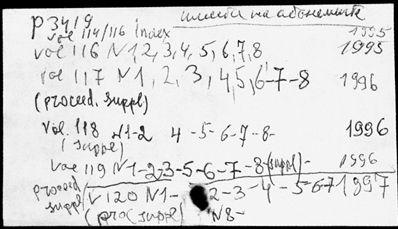 P3419 имеем на абонементе
vol 114/116 index 1995
vol 116 N1,2,3,4,5,6,7,8 1995
vol 117 N1,2,3,4,5,6-7-8 1996
(proceed. suppl)
vol. 118 N1-2 4-5-6-7-8- 1996
(suppl)
vol 119 N1-2-3-5-6-7-8(suppl)- 1996
proceed suppl v120 N1- 2-3-4-5-6-7 1997
(proc suppl) N8-